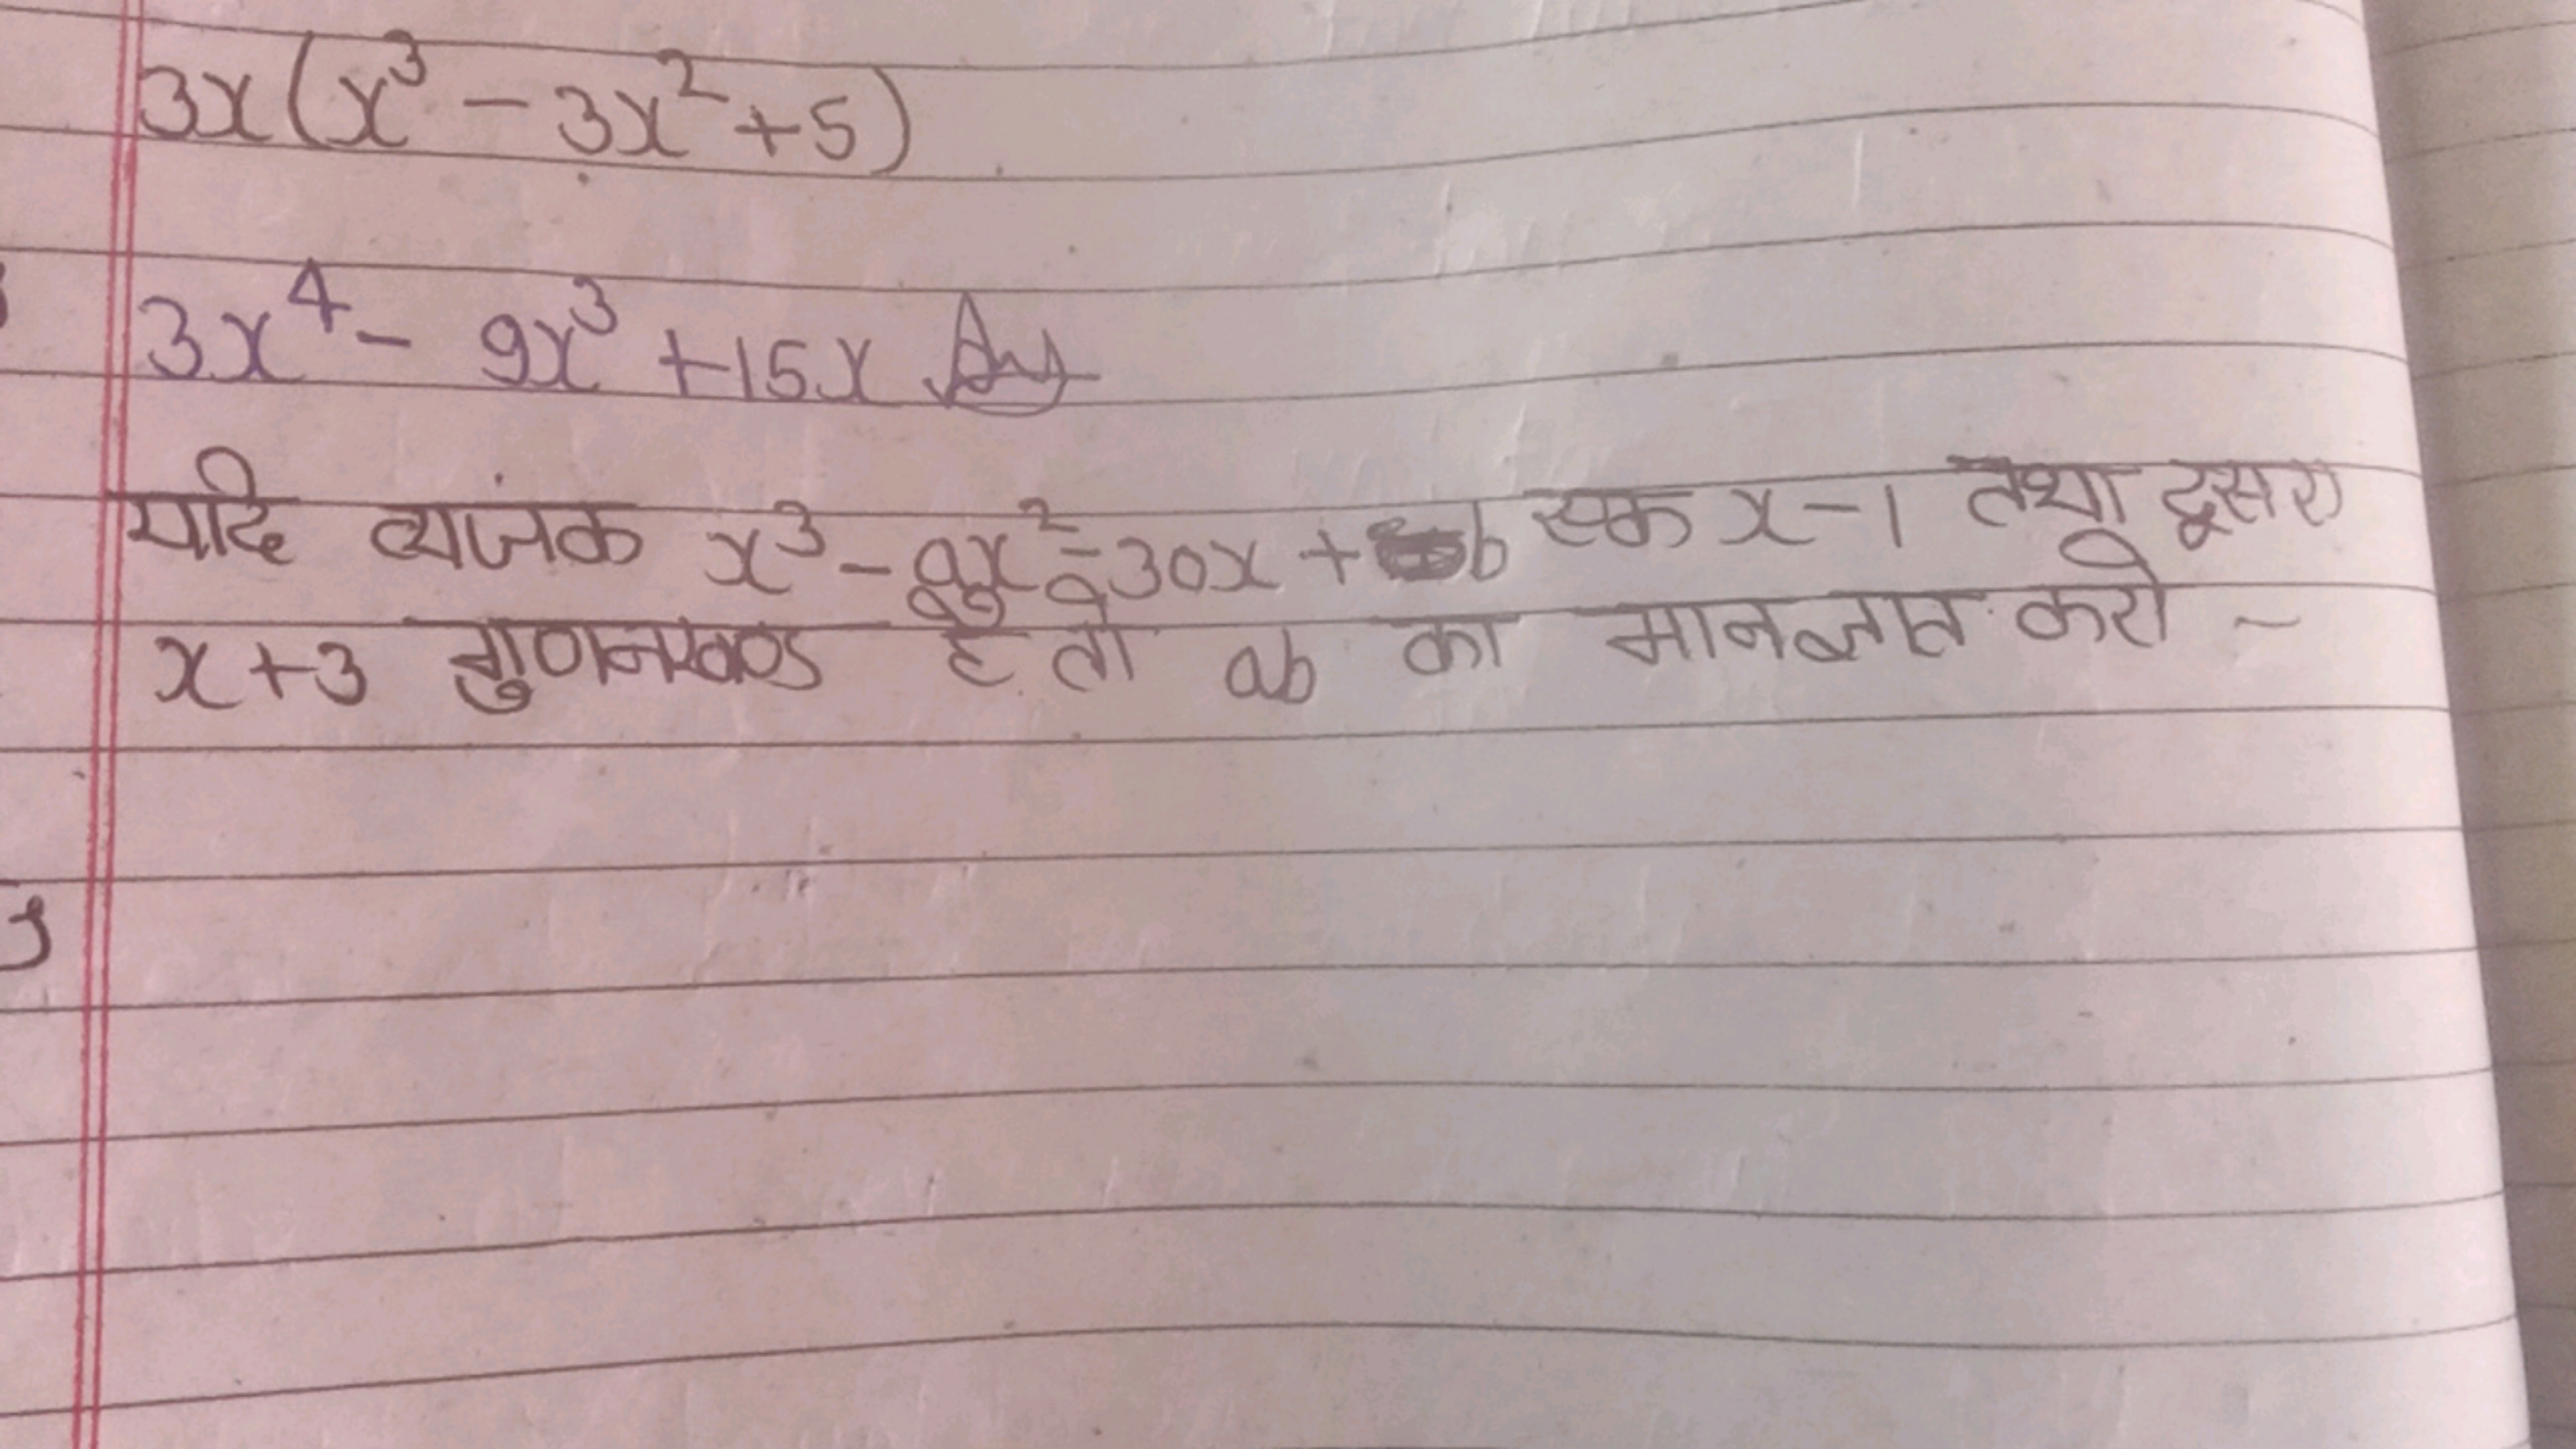 3x(x³ - 3x² + 5)
3x⁴ - 9x³ + 15x Ans
यदि व्यजंक x³ - ax² - 30x + b एक x-1 तथा दूसरा
x+3 गुणनखण्ड है तो ab का मान ज्ञात करो -